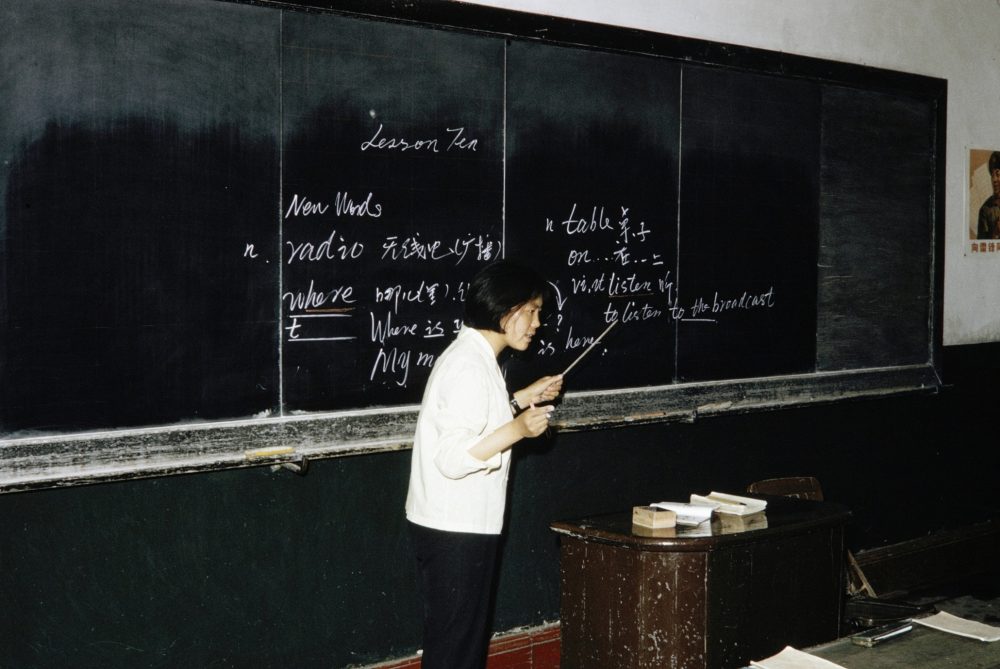 Lesson Ten
New Words
n. radio 无线电 (广播)
where 哪儿(里)
t Where is ?
My is here.
n table 桌子
on...在...上
vi, vt listen 听
to listen to the broadcast
向雷锋